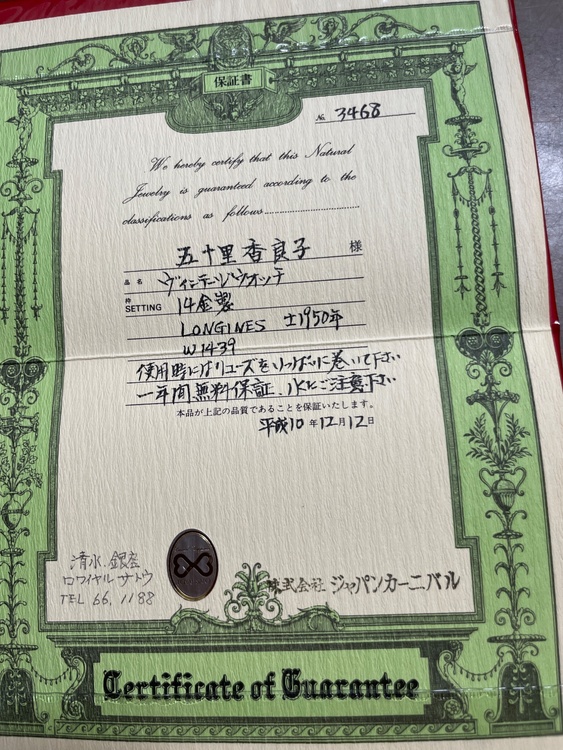 保証書
№ 3468
We hereby certify that this Natural
Jewelry is guaranteed according to the
classifications as follows
五十里香良子 様
品名 ヴィンテージウオッチ
枠 SETTING 14金製
LONGINES ±1950年
W1439
使用時にはリューズをいっぱいに巻いて下さい
一年間無料保証、水にご注意下さい
本品が上記の品質であることを保証いたします。
平成10年12月12日
清水 銀座
ロワイヤルサトウ
TEL 66, 1188
株式会社 ジャパンカーニバル
Certificate of Guarantee